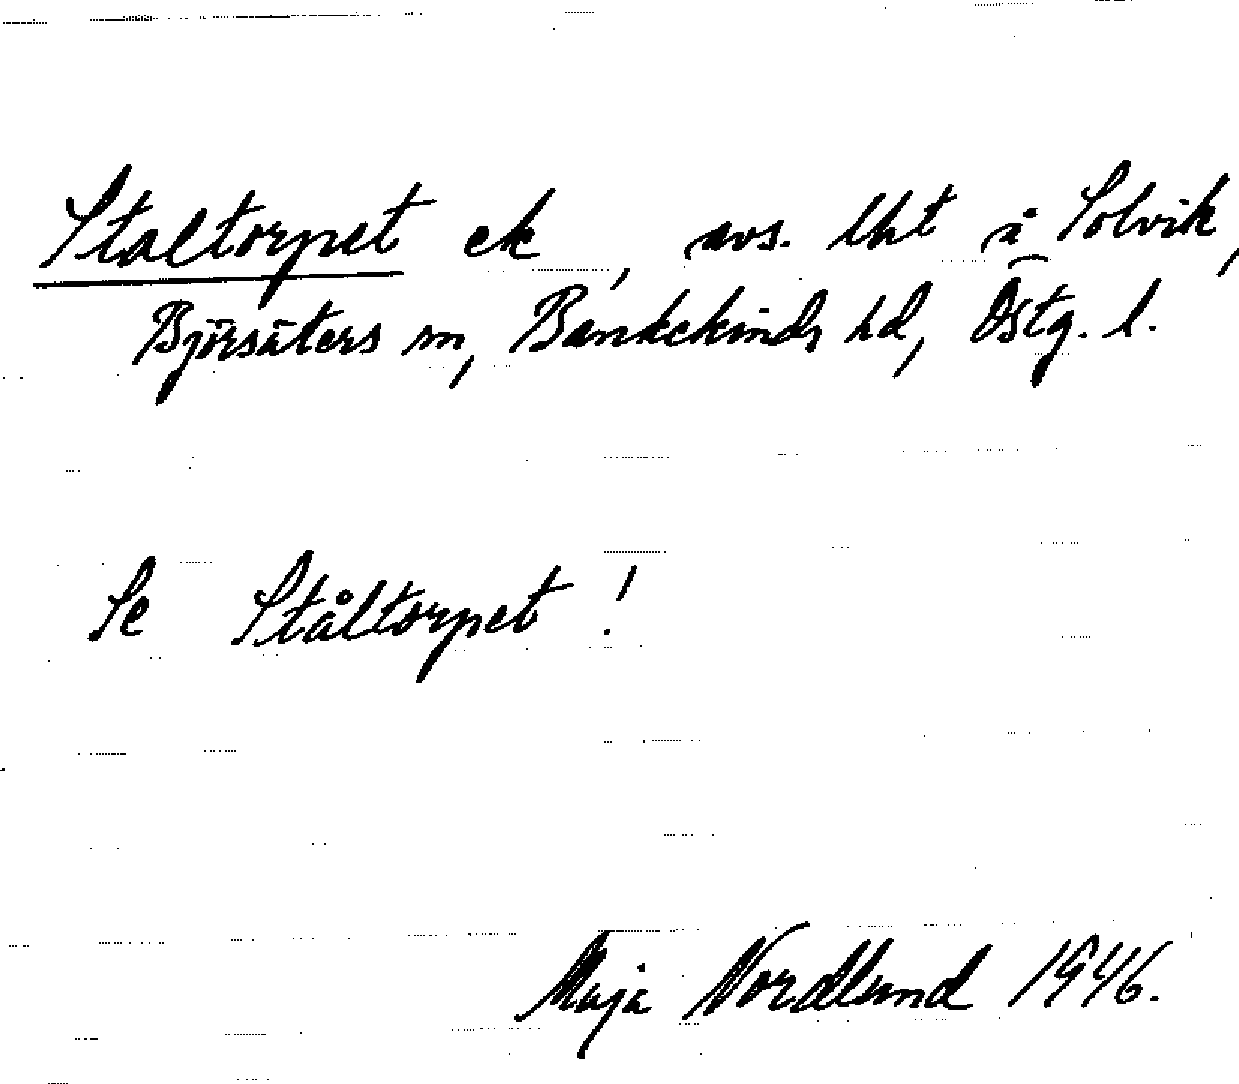 Staltorpet ek, avs. lht å Solvik,
Björsäters sn, Bankekinds hd, Östg. l.
Se Ståltorpet!
Maja Nordlund 1946.